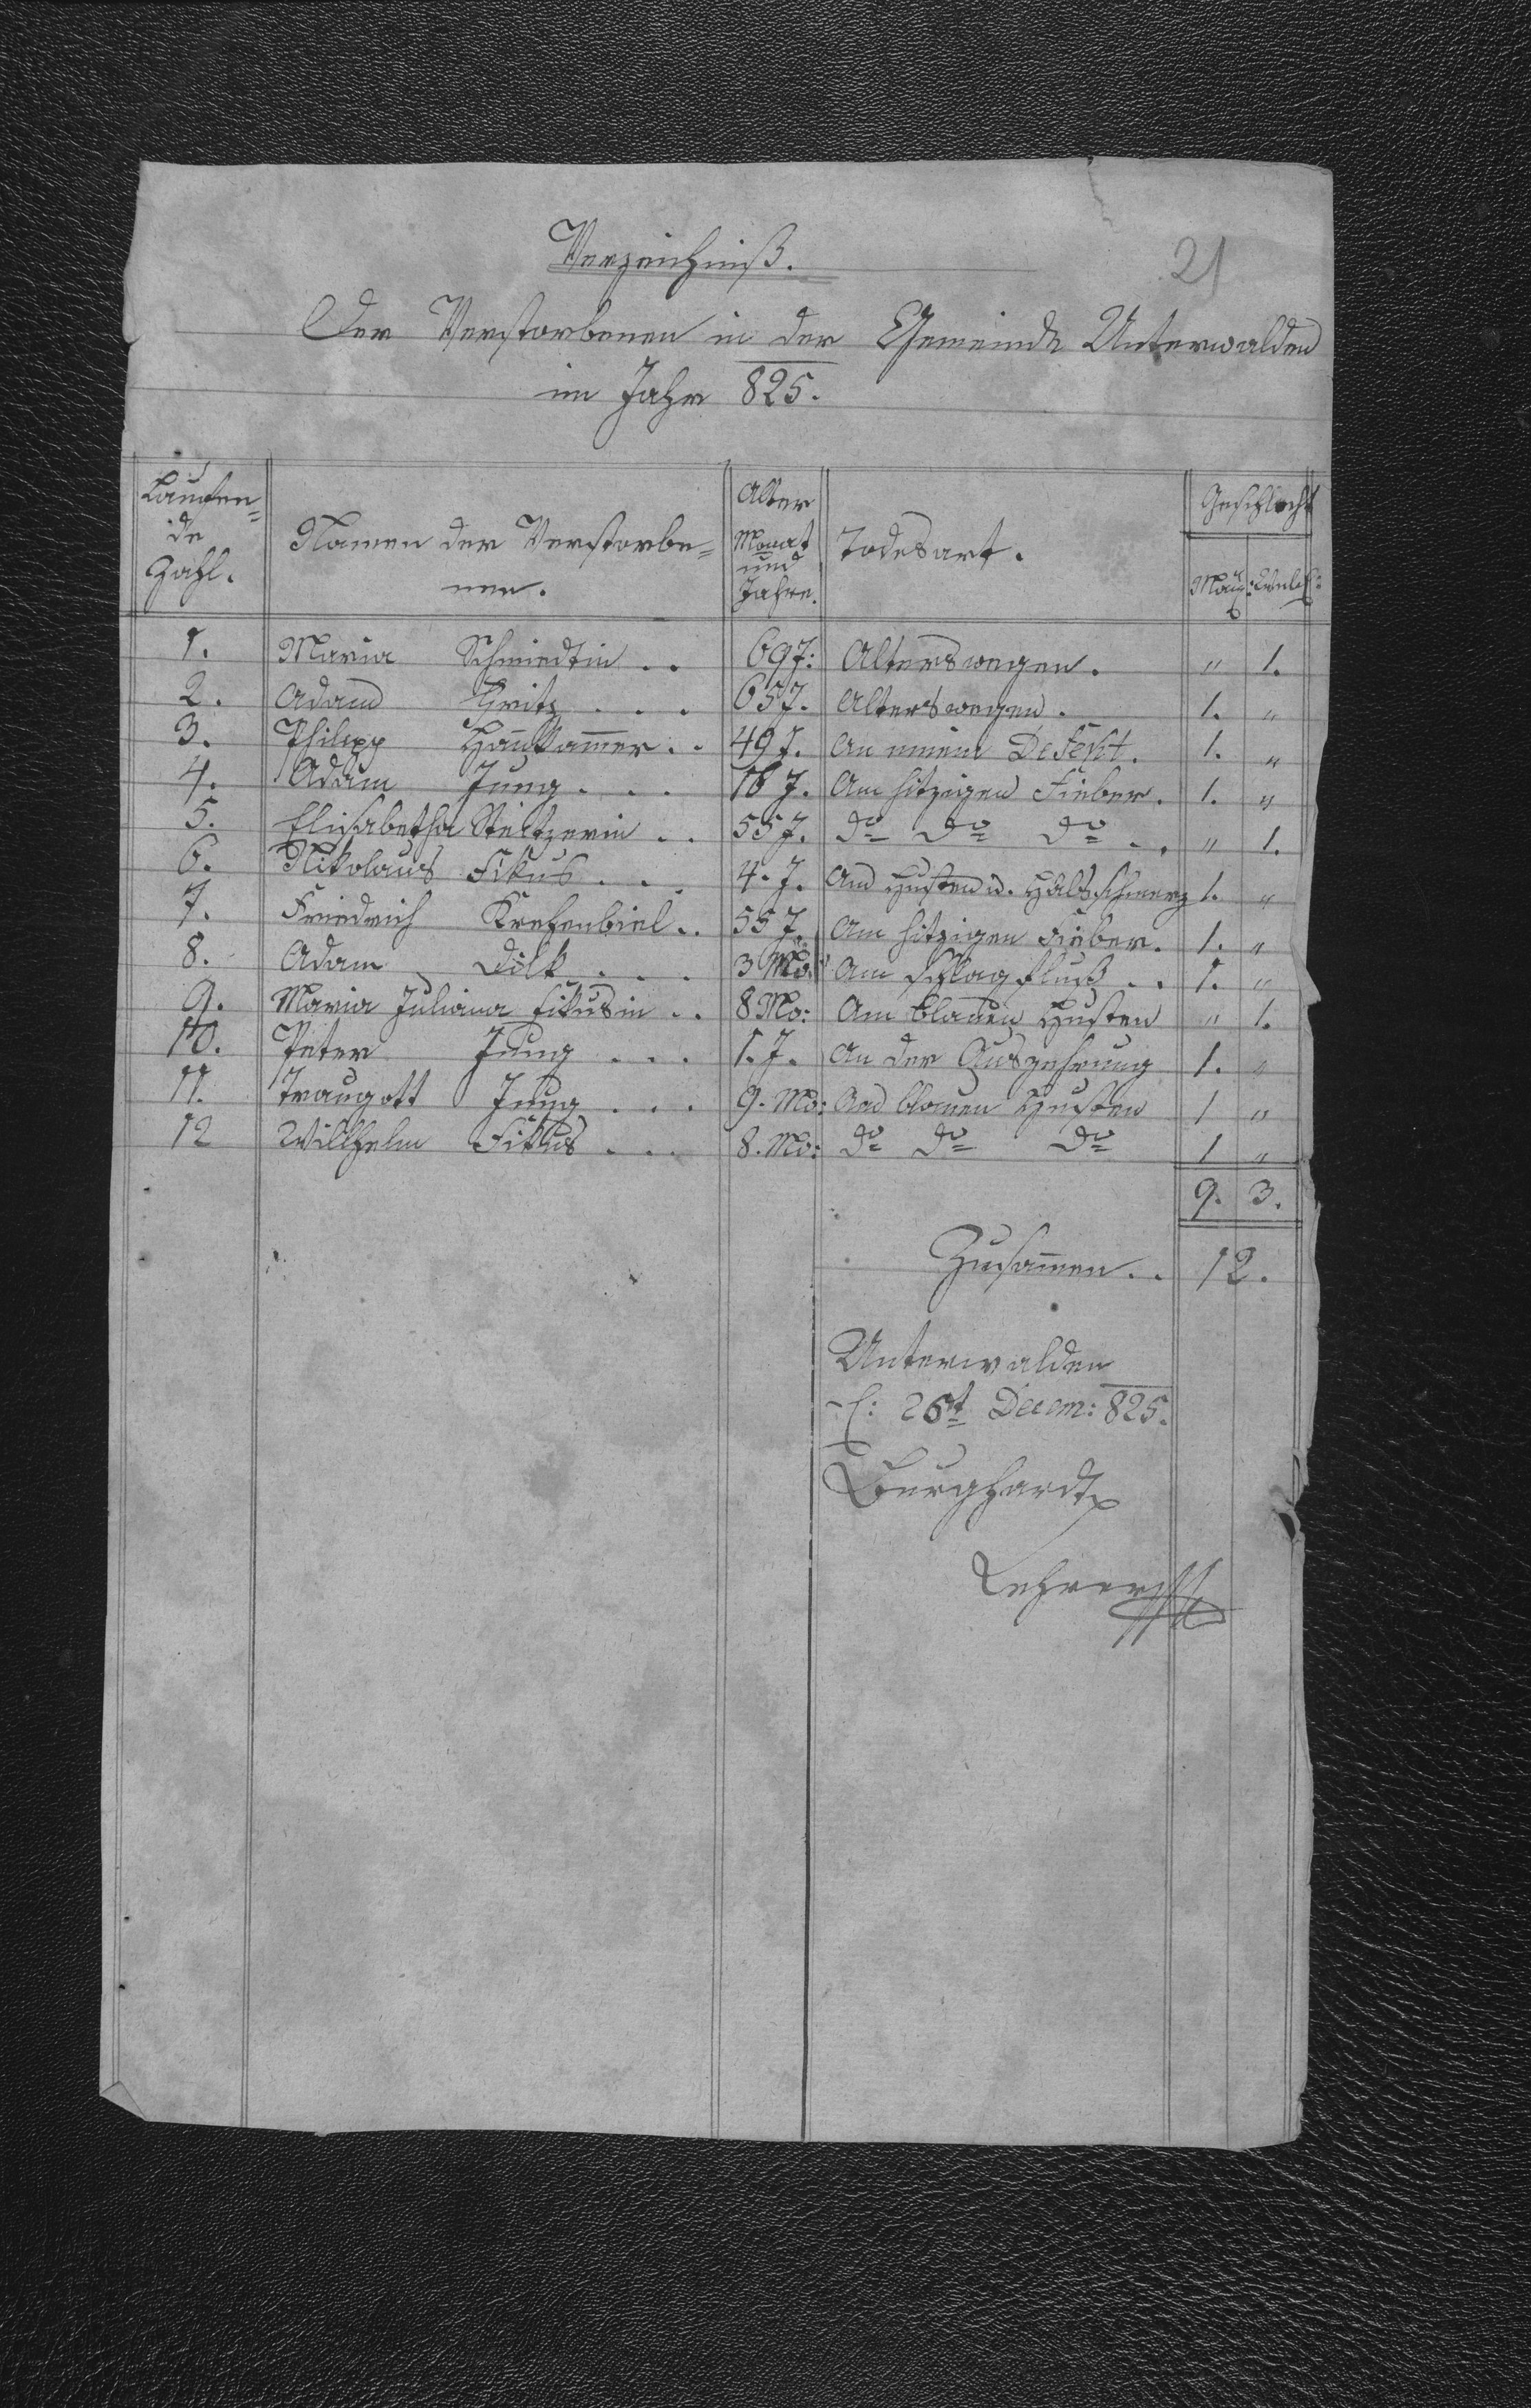 21
Verzeichniß.
Der Verstorbenen in der Gemeinde Unterwalden
im Jahr 825.
Laufen=
de
Zahl.
Namen der Verstorbe=
nen.
Alter
Monat
und
Jahre.
Todesart.
Geschlecht
Mänl: Weibl:
1. Maria Schmiedtin . . 69 J: Alterswegen. " 1.
2. Adam Fritz . . . 65 J. Alterswegen. 1. "
3. Philipp Hankamer . . 49 J. An einem Defekt. 1. "
4. Adam Jung . . . 18 J. Am hitzigen Fieber. 1. "
5. Elisabetha Steltzerin . . 55 J. do do do . . " 1.
6. Nikolaus Fikus . . . 4. J. Am Husten u. Halsschmerz 1. "
7. Friedrich Krehenbiel . . 55 J. Am hitzigen Fieber. 1. "
8. Adam Dilk . . . 3 Mo: Am Schlag fluß . . 1. "
9. Maria Juliana Fikusin . . 8 Mo: Am blauen Husten " 1.
10. Peter Jung . . . 1. J. An der Auszehrung 1. "
11. Traugott Jung . . . 9. Mo: Am blauen Husten 1 "
12 Willhelm Fikus . . . 8. Mo: do do do 1 "
9. 3.
Zusamen . . 12.
Unterwalden
26t Decem: 825.
Burghardt
Lehrer